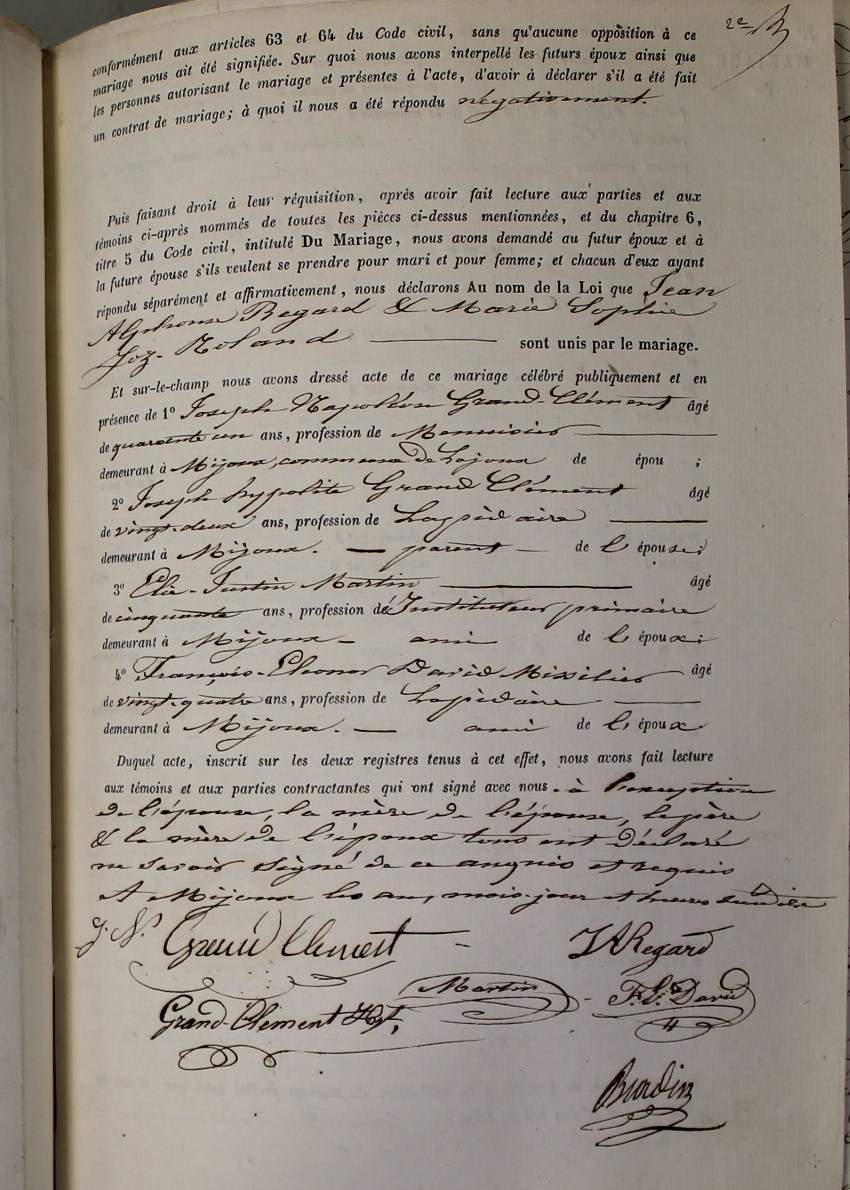 2e
conformément aux articles 63 et 64 du Code civil, sans qu'aucune opposition à ce
mariage nous ait été signifiée. Sur quoi nous avons interpellé les futurs époux ainsi que
les personnes autorisant le mariage et présentes à l'acte, d'avoir à déclarer s'il a été fait
un contrat de mariage; à quoi il nous a été répondu négativement.
Puis faisant droit à leur réquisition, après avoir fait lecture aux parties et aux
témoins ci-après nommés de toutes les pièces ci-dessus mentionnées, et du chapitre 6,
titre 5 du Code civil, intitulé Du Mariage, nous avons demandé au futur époux et à
la future épouse s'ils veulent se prendre pour mari et pour femme; et chacun d'eux ayant
répondu séparément et affirmativement, nous déclarons Au nom de la Loi que Jean
Alphonse Regard & Marie Sophie
Joz-Roland — sont unis par le mariage.
Et sur-le-champ nous avons dressé acte de ce mariage célébré publiquement et en
présence de 1º Joseph-Napoléon Grand-Clément âgé
de quarante un ans, profession de Menuisier —
demeurant à Mijoux, commune de Lajoux de épou ;
2º Joseph hyppolite Grand Clément âgé
de vingt-deux ans, profession de Lapidaire —
demeurant à Mijoux. — parent — de l'épouse;
3º Elie-Justin Martin — âgé
de cinquante ans, profession d'Instituteur primaire
demeurant à Mijoux — ami de l'époux;
4º François-Eléonor David Missilier âgé
de vingt-quatre ans, profession de Lapidaire —
demeurant à Mijoux. — ami de l'époux
Duquel acte, inscrit sur les deux registres tenus à cet effet, nous avons fait lecture
aux témoins et aux parties contractantes qui ont signé avec nous. à l'exception
de l'épouse, la mère de l'épouse, le père
& la mère de l'époux tous ont déclaré
ne savoir signé de ce enquis et requis
A Mijoux les an, mois, jour et heures susdits
J. N. Grand Clément — JA Regard
Martin — F. E. David
Grand-Clément Hyt,